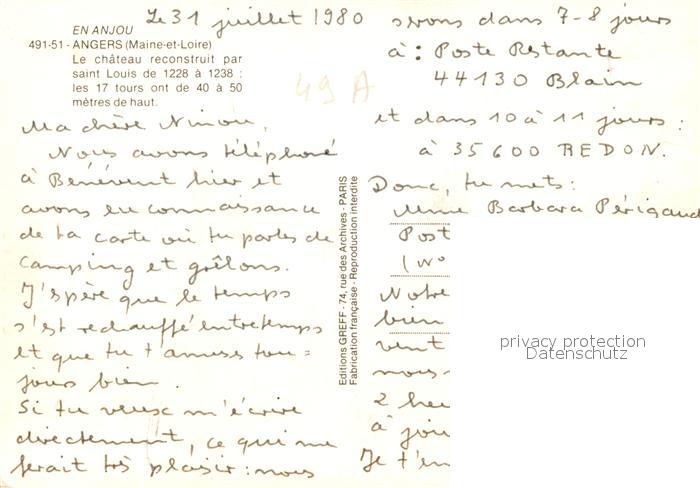 Le 31 juillet 1980
EN ANJOU
491-51 - ANGERS (Maine-et-Loire)
Le château reconstruit par
saint Louis de 1228 à 1238 :
les 17 tours ont de 40 à 50
mètres de haut.
49 A
Ma chère Ninou,
Nous avons téléphoné
à Bénévent hier et
avons eu connaissance
de ta carte où tu parles de
camping et grêlons.
J'espère que le temps
s'est réchauffé entretemps
et que tu t'amuses tou=
jours bien.
Si tu veux m'écrire
directement, ce qui me
ferait très plaisir : nous
Editions GREFF - 74, rue des Archives - PARIS
Fabrication française - Reproduction interdite
serons dans 7-8 jours
à : Poste Restante
44130 Blain
et dans 10 à 11 jours :
à 35600 REDON.
Donc, tu mets :
Mme Barbara Périgaud
Post
(No
Notre
bien
vent
nous-
2 heu
à jou
Je t'en
privacy protection
Datenschutz